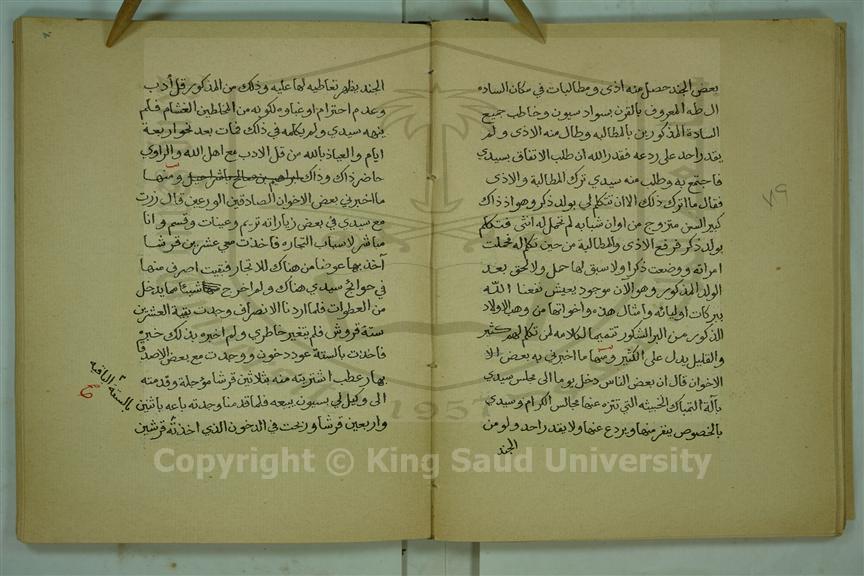 ٧٩
بعض الجند حصل منه اذى ومطالبات في مكان الساده
ال طه المعروف بالقرن بسواد سيون وخاطب جميع
السادة المذكورين بالمطالبه وطال منه الاذى ولم
يقدر احد على ردعه فقدر الله ان طلب الاتفاق بسيدي
فاجتمع به وطلب منه سيدي ترك المطالبة والاذى
فقال ما اترك ذلك الا ان تتكلم لي بولد ذكر وهو اذ ذاك
كبير السن متزوج من اوان شبابه لم تحمل له انثى فتكلم
بولد ذكر فرفع الاذى والمطالبة من حين تكلم له فحملت
امراته ووضعت ذكرا ولا سبق لها حمل ولا لحق بعد
الولد المذكور وهو الان موجود يعيش نفعنا الله
ببركات اوليائه وامثال هذه واخواتها من وهو الاولاد
الذكور من البر الشكور تتميما لكلامه لمن تكلم لهم كثير
والقليل يدل على الكثير ومنها ما اخبرني به بعض الا
الاخوان قال ان بعض الناس دخل يوما الى مجلس سيدي
بآلة التنباك الخبيثه التي تتنزه عنها مجالس الكرام وسيدي
بالخصوص ينفر منها ويردع عنها ولا يقدر احد ولو من
الجند
الجند يظهر تعاطيه لها عليه وذلك من المذكور قل أدب
وعدم احترام او غباوه لكونه من المخاطين الغشام فلم
ينهه سيدي ولم يكلمه في ذلك فمات بعد نحو اربعة
ايام والعياذ بالله من قل الادب مع اهل الله والراوي
حاضر ذاك وذاك ابراهيم بن صالح باشراحيل ومنها
ما اخبرني بعض الاخوان الصادقين الورعين قال زرت
مع سيدي في بعض زياراته تريم وعينات وقسم وانا
مناشر لاسباب التجاره فاخذت معي عشرين قرشا
آخذ بها عوضا من هناك للاتجار فبقيت اصرف منها
في حوائج سيدي هناك ولم اخرج شيئا مما يدخل
من العطوات فلما اردنا الانصراف وجدت بقية العشرين
ستة قروش فلم يتغير خاطري ولم اخبره بذلك خبره
فاخذت بالستة عود دخون ووجدت مع بعض الاصدقا
بهار عطب اشتريته منه بثلاثين قرشا مؤجلة وقدمته
الى وكيل لي بسيون يبيعه فلما قدمنا وجدته باعه باثنين
واربعين قرشا وربحت في الدخون الذي اخذته قرشين
بالستة الباقيه